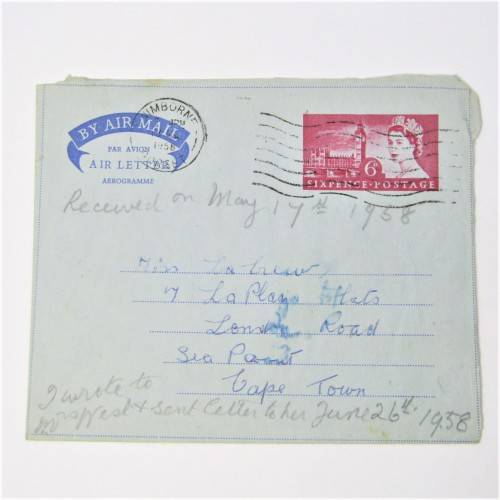 WIMBORNE
1958
BY AIR MAIL
PAR AVION
AIR LETTER
AEROGRAMME
6D
SIXPENCE·POSTAGE
Received on May 17th 1958
Miss
7 La Playa Flats
London Road
Sea Point
Cape Town
I wrote to
& sent letter to her June 26th 1958